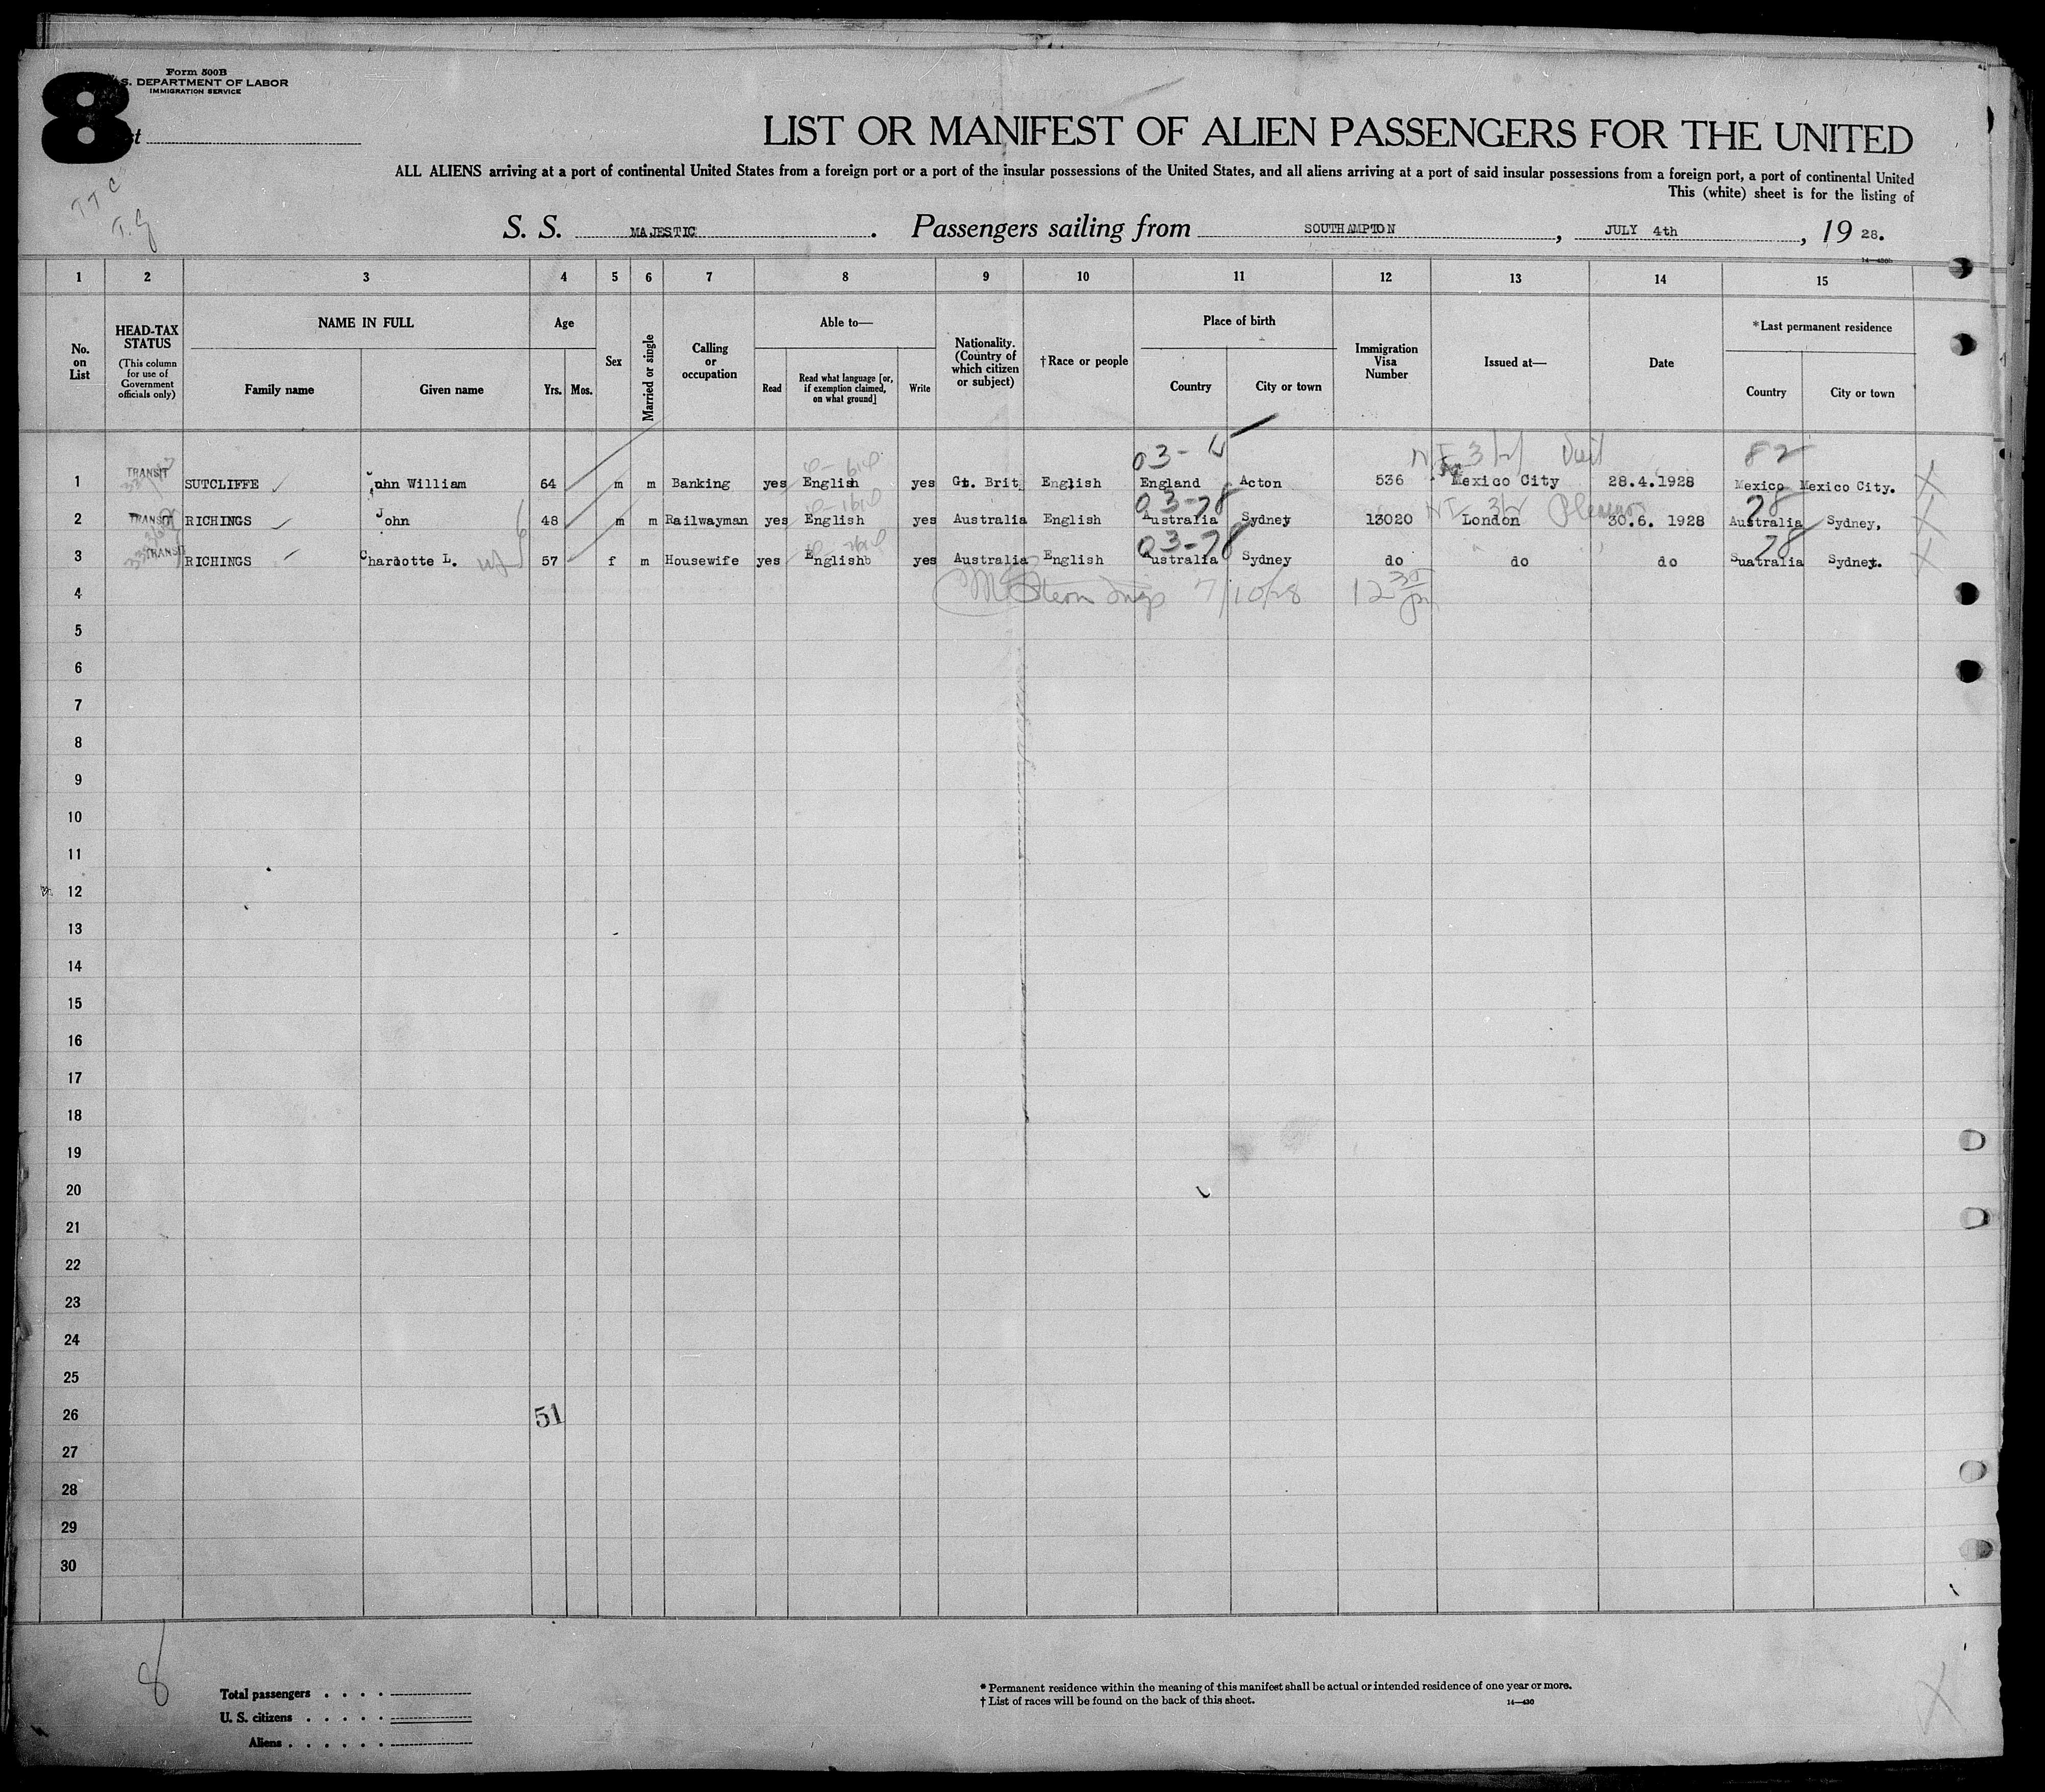 8
Form 500B
S. DEPARTMENT OF LABOR
IMMIGRATION SERVICE
st
LIST OR MANIFEST OF ALIEN PASSENGERS FOR THE UNITED
ALL ALIENS arriving at a port of continental United States from a foreign port or a port of the insular possessions of the United States, and all aliens arriving at a port of said insular possessions from a foreign port, a port of continental United
This (white) sheet is for the listing of
S. S. MAJESTIC. Passengers sailing from SOUTHAMPTON, JULY 4th, 19 28.
14—430b
1 2 3 4 5 6 7 8 9 10 11 12 13 14 15
No. on List
HEAD-TAX STATUS (This column for use of Government officials only)
NAME IN FULL
Family name
Given name
Age
Yrs. Mos.
Sex
Married or single
Calling or occupation
Able to—
Read
Read what language [or, if exemption claimed, on what ground]
Write
Nationality. (Country of which citizen or subject)
†Race or people
Place of birth
Country
City or town
Immigration Visa Number
Issued at—
Date
*Last permanent residence
Country
City or town
03- 82
1 TRANSIT SUTCLIFFE John William 64 m m Banking yes English yes Gt. Brit English England Acton 536 Mexico City 28.4.1928 Mexico Mexico City.
03-78 78
2 TRANSIT RICHINGS John 48 m m Railwayman yes English yes Australia English Australia Sydney 13020 London 30.6. 1928 Australia Sydney,
03-78 78
3 TRANSIT RICHINGS Chardotte L. 57 f m Housewife yes Englishb yes Australia English Australia Sydney do do do Suatralia Sydney.
4 7/10/28
5
6
7
8
9
10
11
12
13
14
15
16
17
18
19
20
21
22
23
24
25
26 51
27
28
29
30
8
Total passengers . . . .
U. S. citizens . . . . .
Aliens . . . . . .
* Permanent residence within the meaning of this manifest shall be actual or intended residence of one year or more.
† List of races will be found on the back of this sheet. 14—430